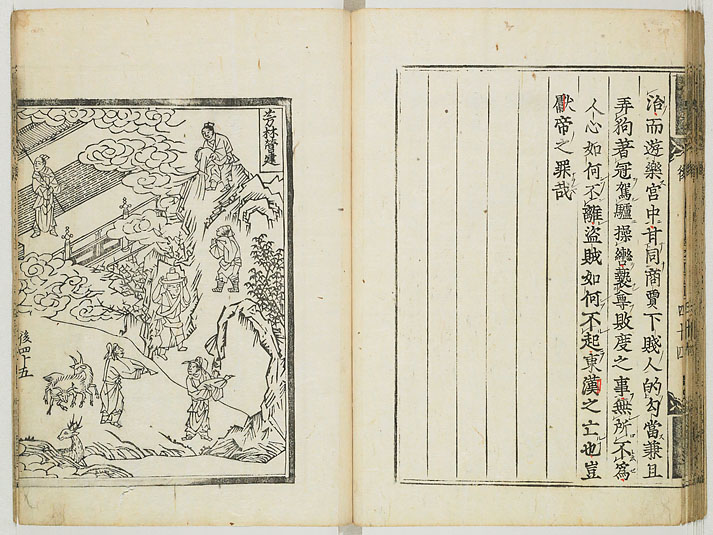 治而遊樂宮中甘同商賈下賤人的勾當兼且
弄狗著冠駕驢操轡褻尊敗度之事無所不為
人心如何不離盜賊如何不起東漢之亡也豈
獻帝之罪哉
芳林營建
後四十五